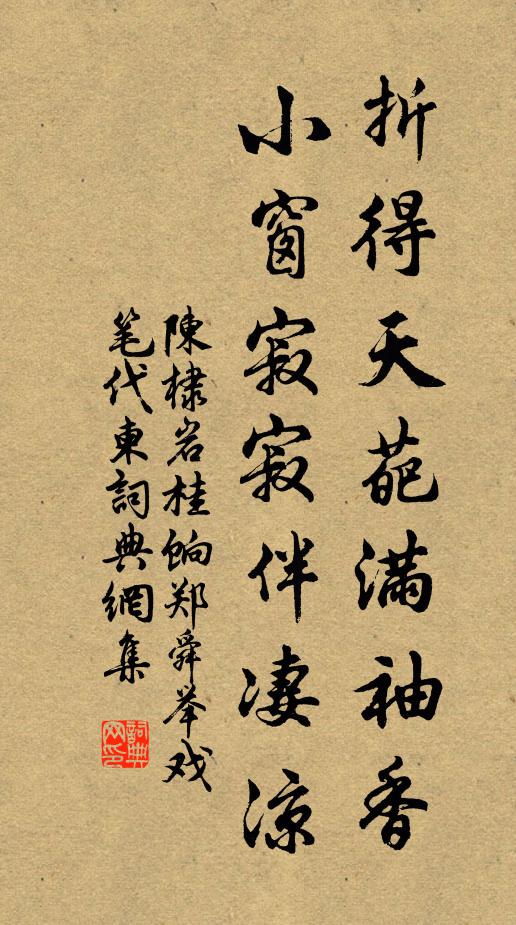 折得天葩满袖香
小窗寂寂伴凄凉
陳棣岩桂餉郑舜举戏
笔代東詞典網集
詞典网印